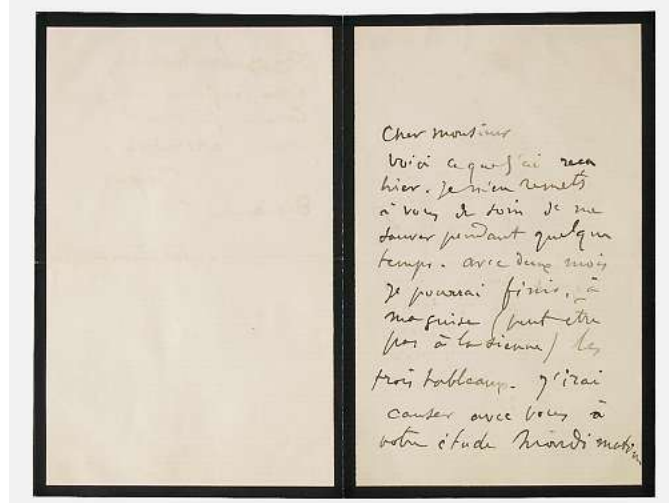 Cher monsieur
Voici ce que j'ai reçu
hier. Je m'en remets
à vous du soin de me
sauver pendant quelque
temps. avec deux mois
je pourrai finir, à
ma guise (peut être
pas à la sienne) les
trois tableaux. J'irai
causer avec vous à
votre étude mardi matin